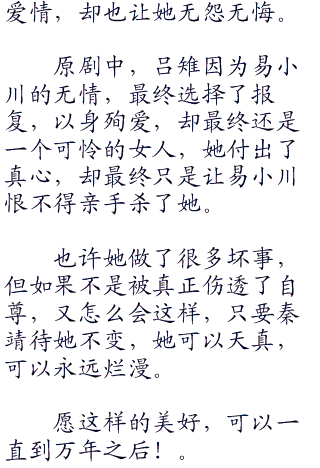 爱情，却也让她无怨无悔。
原剧中，吕雉因为易小
川的无情，最终选择了报
复，以身殉爱，却最终还是
一个可怜的女人，她付出了
真心，却最终只是让易小川
恨不得亲手杀了她。
也许她做了很多坏事，
但如果不是被真正伤透了自
尊，又怎么会这样，只要秦
靖待她不变，她可以天真，
可以永远烂漫。
愿这样的美好，可以一
直到万年之后！。